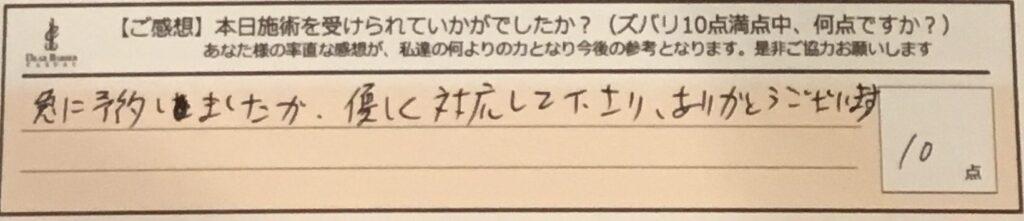 【ご感想】本日施術を受けられていかがでしたか?(ズバリ10点満点中、何点ですか?)
あなた様の率直な感想が、私達の何よりの力となり今後の参考となります。是非ご協力お願いします
DEAR BARBER
急に予約しましたが、優しく対応して下さり、ありがとうございます
10
点